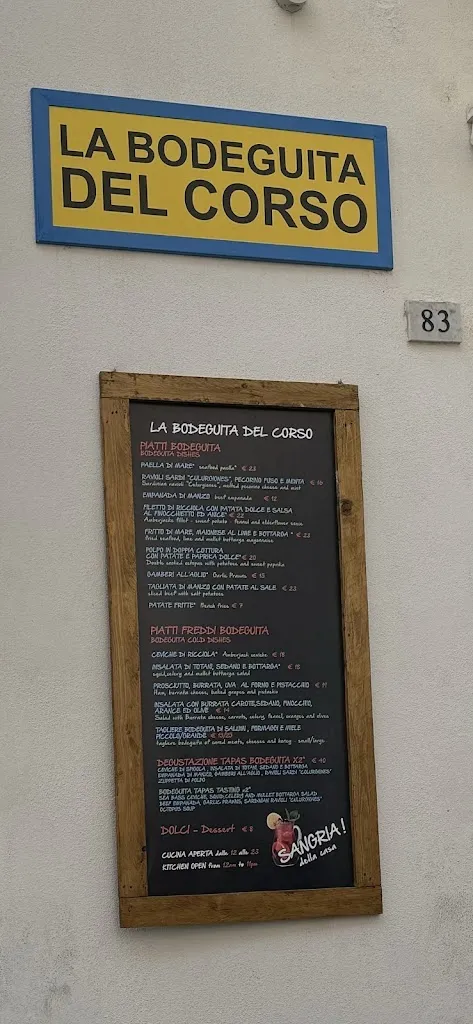 LA BODEGUITA
DEL CORSO
83
LA BODEGUITA DEL CORSO
PIATTI BODEGUITA
BODEGUITA DISHES
PAELLA DI MARE* seafood paella* € 23
RAVIOLI SARDI "CULURGIONES", PECORINO FUSO E MENTA € 16
Sardinian ravioli "Culurgiones", melted pecorino cheese and mint
EMPANADA DI MANZO beef empanada € 12
FILETTO DI RICCIOLA CON PATATA DOLCE E SALSA
AL FINOCCHIETTO ED ANICE* € 22
Amberjacks fillet - sweet potato - fennel and elderflower sauce
FRITTO DI MARE, MAIONESE AL LIME E BOTTARGA * € 23
fried seafood, lime and mullet bottarga mayonnaise
POLPO IN DOPPIA COTTURA
CON PATATE E PAPRIKA DOLCE* € 20
Double cooked octopus with potatoes and sweet paprika
GAMBERI ALL'AGLIO* Garlic Prawns € 15
TAGLIATA DI MANZO CON PATATE AL SALE € 23
sliced beef with salt potatoes
PATATE FRITTE* French fries € 7
PIATTI FREDDI BODEGUITA
BODEGUITA COLD DISHES
CEVICHE DI RICCIOLA* Amberjack ceviche € 18
INSALATA DI TOTANI, SEDANO E BOTTARGA* € 18
squid, celery and mullet bottarga salad
PROSCIUTTO, BURRATA, UVA AL FORNO E PISTACCHIO € 19
Ham, burrata cheese, baked grapes and pistachio
INSALATA CON BURRATA CAROTE, SEDANO, FINOCCHIO,
ARANCE ED OLIVE € 14
Salad with Burrata cheese, carrots, celery, fennel, oranges and olives
TAGLIERE BODEGUITA DI SALUMI , FORMAGGI E MIELE
PICCOLO/GRANDE
tagliere bodeguita of cured meats, cheeses and honey - small/large
DEGUSTAZIONE TAPAS BODEGUITA X2* € 40
CEVICHE DI SPIGOLA , INSALATA DI TOTANI, SEDANO E BOTTARGA
EMPANADA DI MANZO, GAMBERI ALL'AGLIO , RAVIOLI SARDI "CULURGIONES"
ZUPPETTA DI POLPO
BODEGUITA TAPAS TASTING x2*
SEA BASS CEVICHE, SQUID, CELERY AND MULLET BOTTARGA SALAD
BEEF EMPANADA, GARLIC PRAWNS, SARDINIAN RAVIOLI "CULURGIONES"
OCTOPUS SOUP
DOLCI - Dessert € 8
SANGRIA!
della casa
CUCINA APERTA dalle 12 alle 23
KITCHEN OPEN from 12am to 11pm